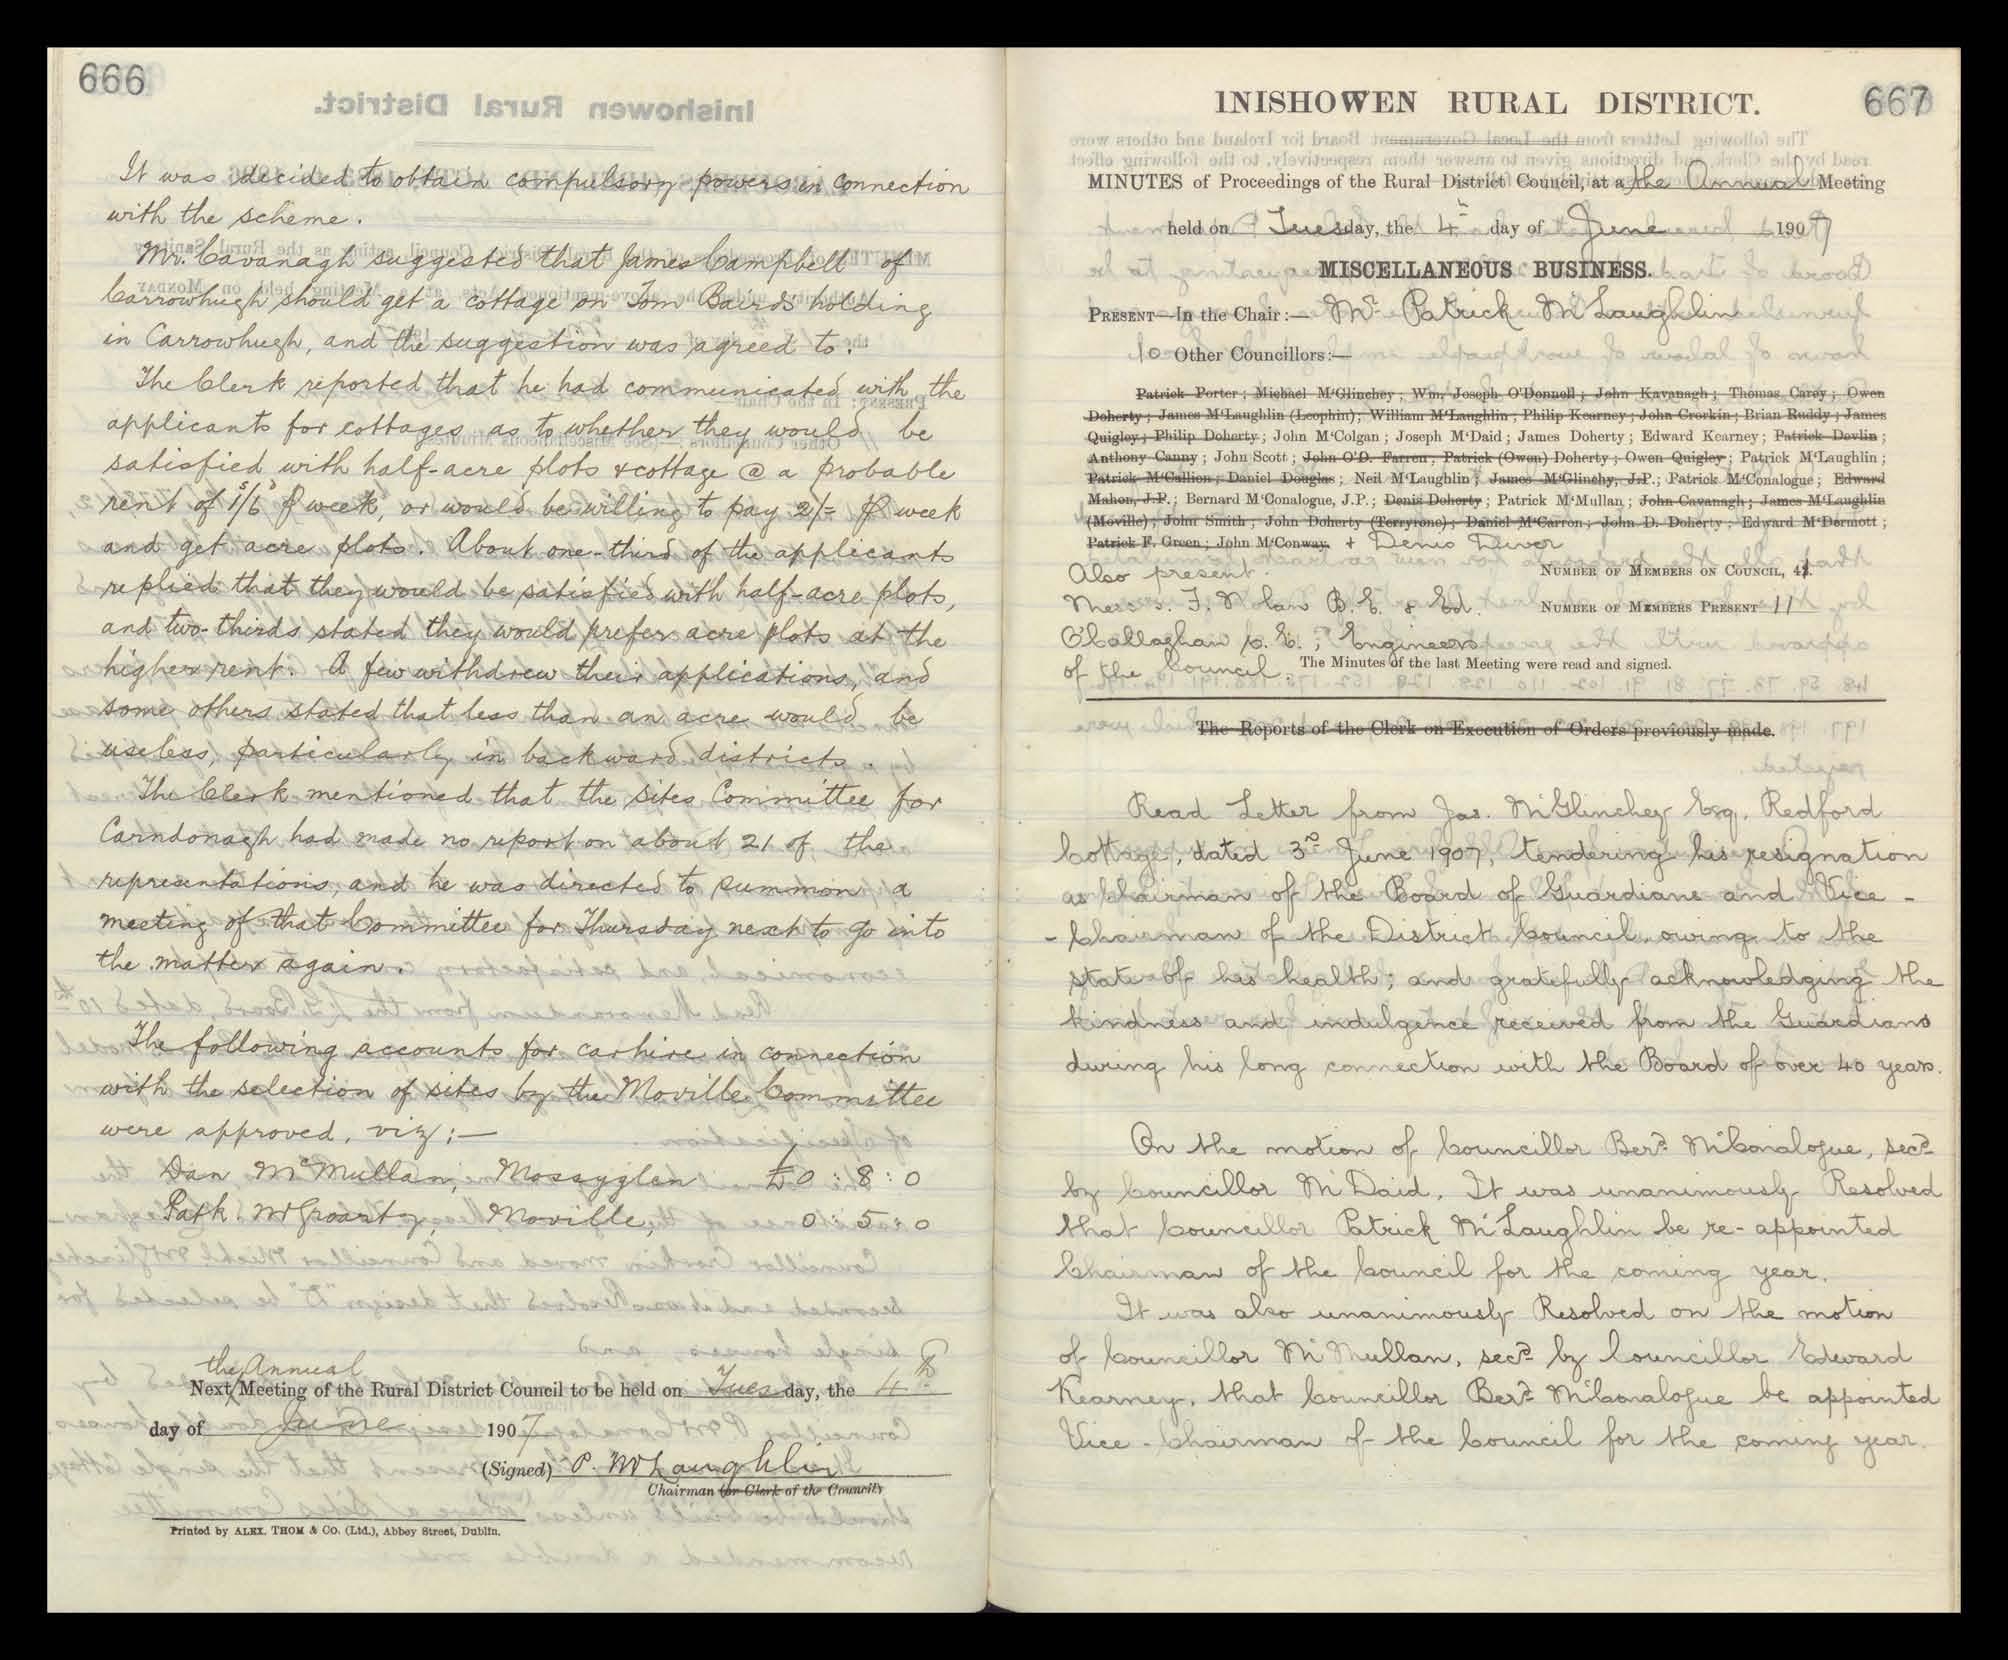 666
It was decided to obtain compulsory powers in connection
with the scheme.
Mr. Cavanagh suggested that James Campbell of
Carrowhugh should get a cottage on Tom Bairds holding
in Carrowhugh, and the suggestion was agreed to.
The Clerk reported that he had communicated with the
applicants for cottages as to whether they would be
satisfied with half-acre plots & cottage @ a probable
rent of 1/6 ⅌ week, or would be willing to pay 2/= ⅌ week
and get acre plots. About one-third of the applicants
replied that they would be satisfied with half-acre plots,
and two-thirds stated they would prefer acre plots at the
higher rent. A few withdrew their applications, and
some others stated that less than an acre would be
useless, particularly in backward districts.
The Clerk mentioned that the Sites Committee for
Carndonagh had made no report on about 21 of the
representations, and he was directed to summon a
meeting of that Committee for Thursday next to go into
the matter again.
The following accounts for carhire in connection
with the selection of sites by the Moville Committee
were approved, viz:—
Dan McMullan, Mossyglen £0 : 8 : 0
Patk. McGroarty, Moville, 0 : 5 : 0
the Annual
Next Meeting of the Rural District Council to be held on Tuesday, the 4th
day of June 1907
(Signed) P. McLaughlin
Chairman (or Clerk of the Council)
Printed by ALEX. THOM & CO. (Ltd.), Abbey Street, Dublin.
INISHOWEN RURAL DISTRICT. 667
MINUTES of Proceedings of the Rural District Council, at a the Annual Meeting
held on Tuesday, the 4th day of June 1907
MISCELLANEOUS BUSINESS.
PRESENT—In the Chair:— Mr Patrick McLaughlin
10 Other Councillors:—
Patrick Porter; Michael M'Glinchey; Wm. Joseph O'Donnell; John Kavanagh; Thomas Carey; Owen
Doherty; James M'Laughlin (Leophin); William M'Laughlin; Philip Kearney; John Crorkin; Brian Ruddy; James
Quigley; Philip Doherty; John M'Colgan; Joseph M'Daid; James Doherty; Edward Kearney; Patrick Devlin;
Anthony Canny; John Scott; John O'D. Farren; Patrick (Owen) Doherty; Owen Quigley; Patrick M'Laughlin;
Patrick M'Callion; Daniel Douglas; Neil M'Laughlin; James M'Glinchy, J.P.; Patrick M'Conalogue; Edward
Mahon, J.P.; Bernard M'Conalogue, J.P.; Denis Doherty; Patrick M'Mullan; John Cavanagh; James M'Laughlin
(Moville); John Smith; John Doherty (Terrytone); Daniel M'Carron; John D. Doherty; Edward M'Dermott;
Patrick F. Green; John M'Conway. & Denis Diver
Also present. NUMBER OF MEMBERS ON COUNCIL, 4
Messrs. F. Nolan B.E. & Ed. NUMBER OF MEMBERS PRESENT 11
O'Callaghan C.E.; Engineers
of the Council. The Minutes of the last Meeting were read and signed.
The Reports of the Clerk on Execution of Orders previously made.
Read Letter from Jas. McGlinchey Esq. Redford
Cottage, dated 3rd June 1907, tendering his resignation
as Chairman of the Board of Guardians and Vice -
- Chairman of the District Council, owing to the
state of his health; and gratefully acknowledging the
kindness and indulgence received from the Guardians
during his long connection with the Board of over 40 years.
On the motion of Councillor Berd. McConalogue, secd.
by Councillor McDaid, It was unanimously Resolved
that Councillor Patrick McLaughlin be re-appointed
Chairman of the Council for the coming year.
It was also unanimously Resolved on the motion
of Councillor McMullan, secd. by Councillor Edward
Kearney, that Councillor Berd. McConalogue be appointed
Vice-Chairman of the Council for the coming year.